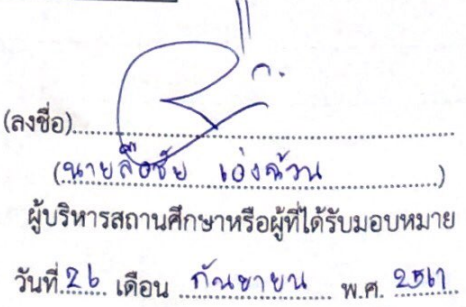 (ลงชื่อ)
(นายลือชัย เอ่งฉ้วน)
ผู้บริหารสถานศึกษาหรือผู้ที่ได้รับมอบหมาย
วันที่ 26 เดือน กันยายน พ.ศ. 2561